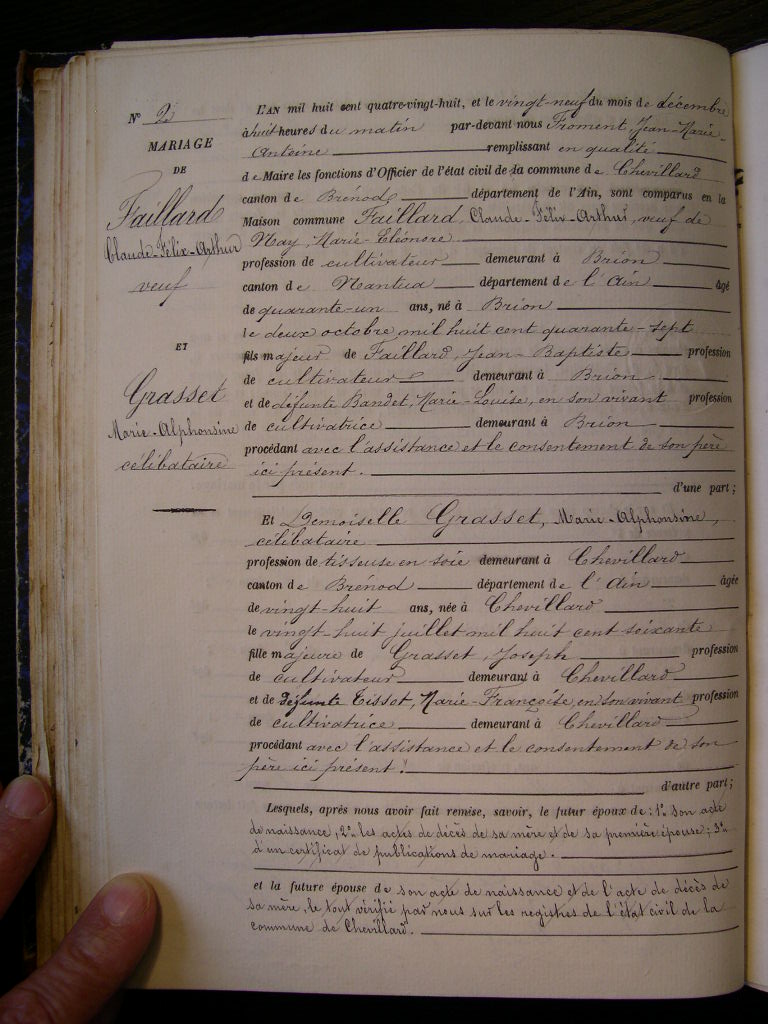 N° 2
MARIAGE
DE
Faillard
Claude-Félix-Arthur
veuf
ET
Grasset
Marie-Alphonsine
célibataire
L'AN mil huit cent quatre-vingt-huit, et le vingt-neuf du mois de décembre
à huit heures du matin par-devant nous Froment, Jean-Marie-
Antoine remplissant en qualité
de Maire les fonctions d'Officier de l'état civil de la commune de Chevillard
canton de Brénod département de l'Ain, sont comparus en la
Maison commune Faillard, Claude-Félix-Arthur, veuf de
May, Marie-Eléonore
profession de cultivateur demeurant à Brion
canton de Nantua département de l'Ain âgé
de quarante-un ans, né à Brion
le deux octobre mil huit cent quarante-sept
fils majeur de Faillard, Jean-Baptiste profession
de cultivateur demeurant à Brion
et de défunte Bandet, Marie-Louise, en son vivant profession
de cultivatrice demeurant à Brion
procédant avec l'assistance et le consentement de son père
ici présent.
d'une part;
Et Demoiselle Grasset, Marie-Alphonsine,
célibataire
profession de tisseuse en soie demeurant à Chevillard
canton de Brénod département de l'Ain âgée
de vingt-huit ans, née à Chevillard
le vingt-huit juillet mil huit cent soixante
fille majeure de Grasset, Joseph profession
de cultivateur demeurant à Chevillard
et de défunte Tissot, Marie-Françoise, en son vivant profession
de cultivatrice demeurant à Chevillard
procédant avec l'assistance et le consentement de son
père ici présent!
d'autre part;
Lesquels, après nous avoir fait remise, savoir, le futur époux de: 1° son acte
de naissance; 2° les actes de décès de sa mère et de sa première épouse; 3°
d'un certificat de publications de mariage.
et la future épouse de son acte de naissance et de l'acte de décès de
sa mère, le tout vérifié par nous sur les registres de l'état civil de la
commune de Chevillard.